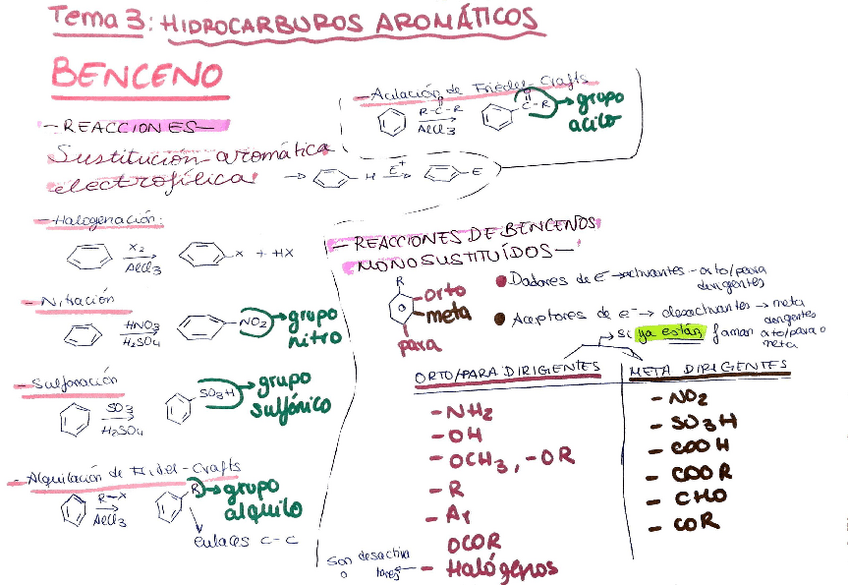 Tema 3: HIDROCARBUROS AROMÁTICOS
BENCENO
- REACCIONES -
Sustitución aromática
electrofílica
→ H E+ → E
- Acilación de Friedel-Crafts
R-C-R
AlCl3
O
C-R → grupo
acilo
- Halogenación:
X2
AlCl3
X + HX
- Nitración
HNO3
H2SO4
NO2 → grupo
nitro
- Sulfonación
SO3
H2SO4
SO3H → grupo
sulfónico
- Alquilación de Fridel-Crafts
R-X
AlCl3
R → grupo
alquilo
enlaces C-C
- REACCIONES DE BENCENOS
MONOSUSTITUÍDOS -
R
orto
meta
para
Dadores de e- → activantes - orto/para
dirigentes
Aceptores de e- → desactivantes → meta
dirigentes
→ si ya están forman orto/para o
meta
ORTO/PARA DIRIGENTES
- NH2
- OH
- OCH3, -OR
- R
- Ar
OCOR
- Halógenos
Son desactiva
o tores
META DIRIGENTES
- NO2
- SO3H
- COOH
- COOR
- CHO
- COR